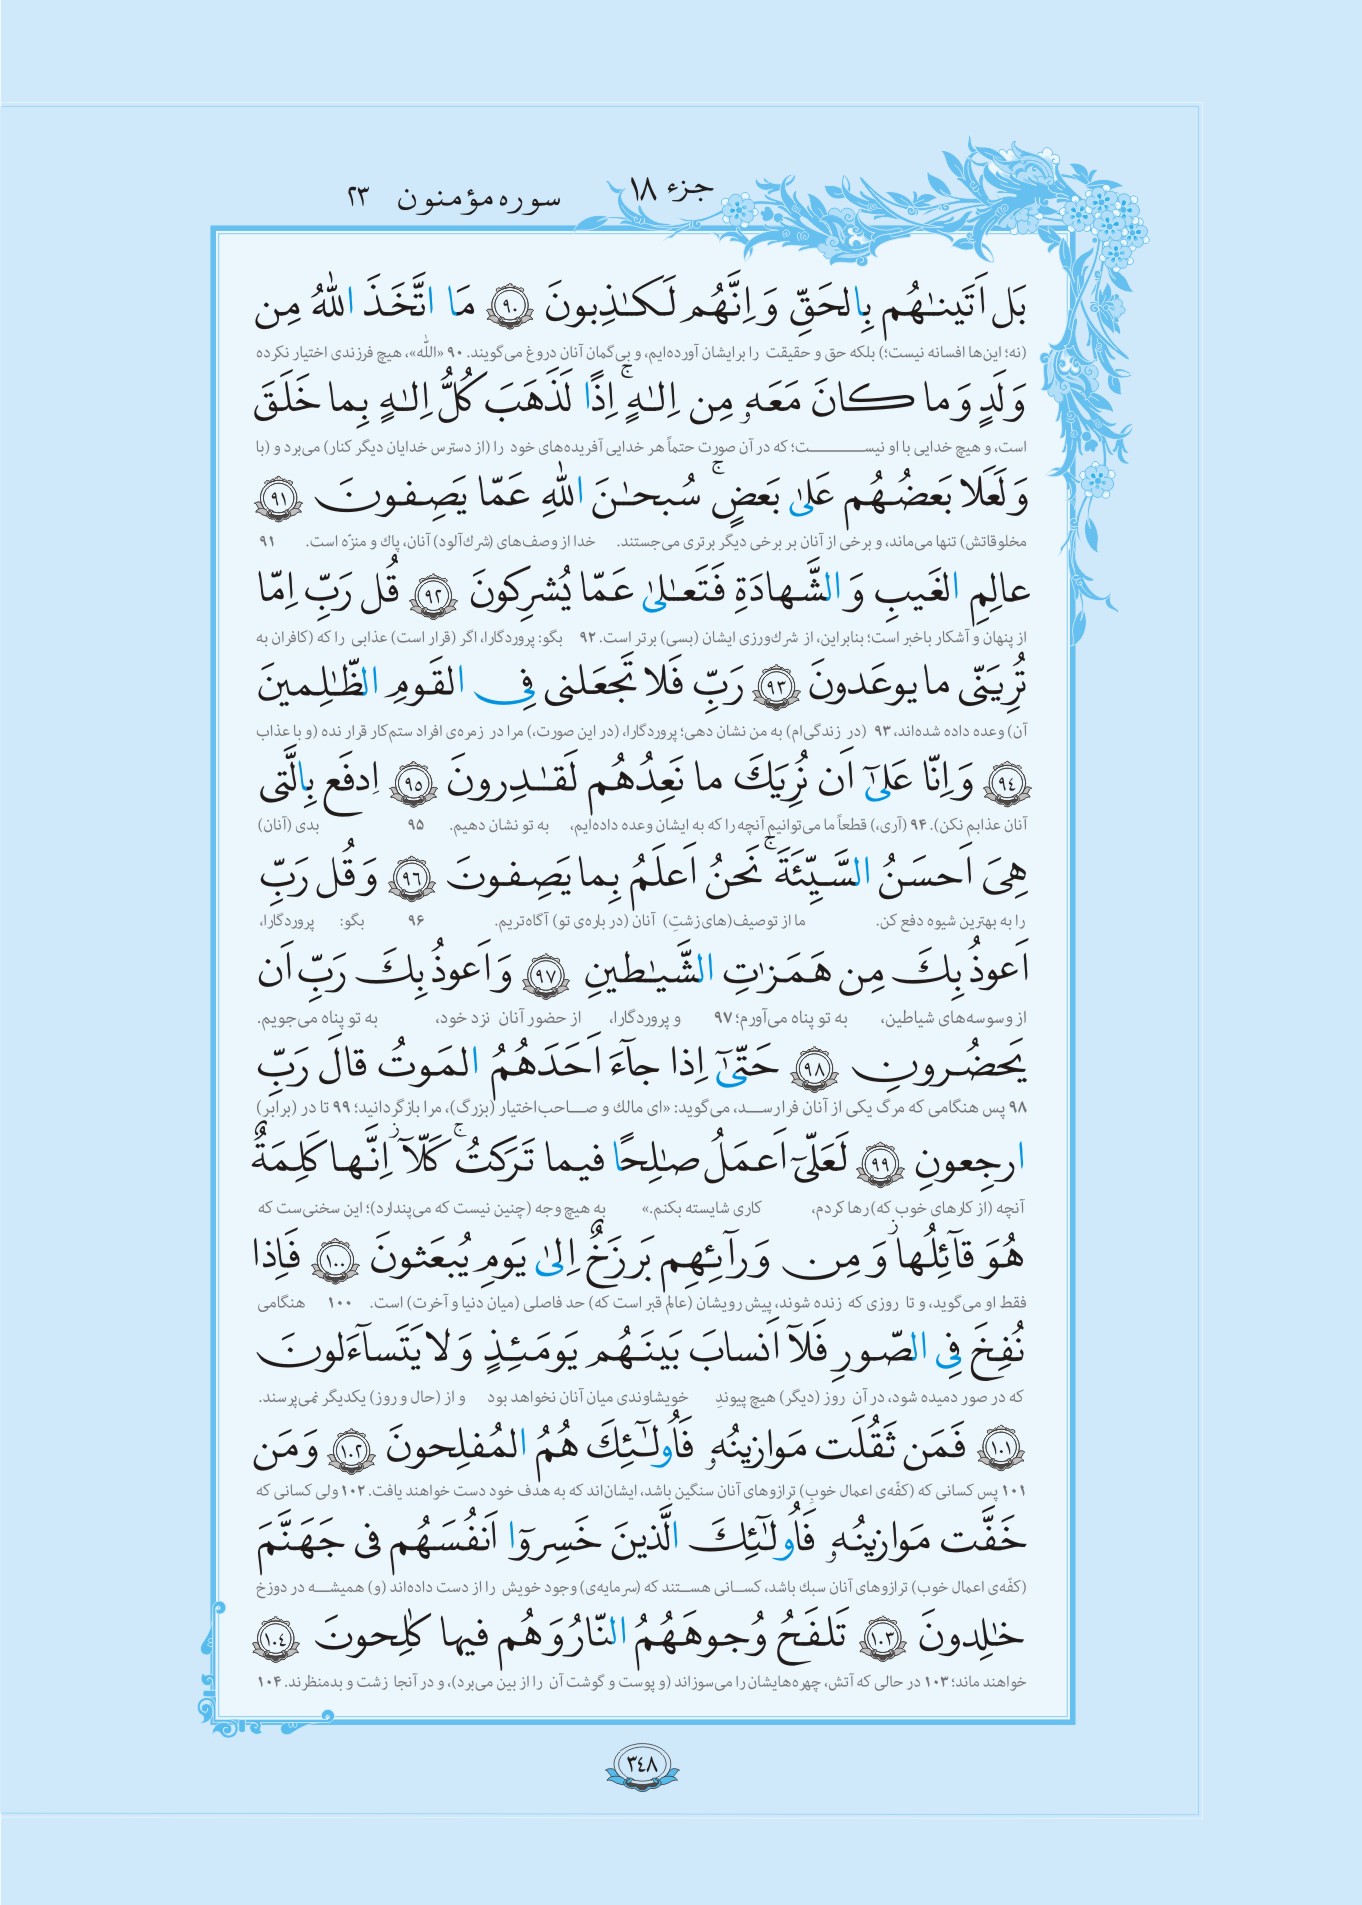 جزء ۱۸
سوره مؤمنون ۲۳
بَل اَتَينٰهُم بِالحَقِّ وَ اِنَّهُم لَكٰذِبونَ ﴿٩٠﴾ مَا اتَّخَذَ اللّٰهُ مِن
(نه؛ این‌ها افسانه نیست؛) بلکه حق و حقیقت را برایشان آورده‌ایم، و بی‌گمان آنان دروغ می‌گویند. ۹۰ «اللّٰه»، هیچ فرزندی اختیار نکرده
وَلَدٍ وَ ما كانَ مَعَهٗ مِن اِلٰهٍ ۚ اِذًا لَذَهَبَ كُلُّ اِلٰهٍ بِما خَلَقَ
است، و هیچ خدایی با او نیست؛ که در آن صورت حتماً هر خدایی آفریده‌های خود را (از دسترس خدایان دیگر کنار) می‌برد و (با
وَ لَعَلا بَعضُهُم عَلىٰ بَعضٍ ۚ سُبحٰنَ اللّٰهِ عَمّا يَصِفونَ ﴿٩١﴾
مخلوقاتش) تنها می‌ماند، و برخی از آنان بر برخی دیگر برتری می‌جستند. خدا از وصف‌های (شرك‌آلود) آنان، پاك و منزّه است. ۹۱
عالِمِ الغَيبِ وَ الشَّهادَةِ فَتَعٰلىٰ عَمّا يُشرِكونَ ﴿٩٢﴾ قُل رَبِّ اِمّا
از پنهان و آشکار باخبر است؛ بنابراین، از شرك‌ورزی ایشان (بسی) برتر است. ۹۲ بگو: پروردگارا، اگر (قرار است) عذابی را که (کافران به
تُرِيَنّى ما يوعَدونَ ﴿٩٣﴾ رَبِّ فَلا تَجعَلنى فِى القَومِ الظّٰلِمينَ
آن) وعده داده شده‌اند، ۹۳ (در زندگی‌ام) به من نشان دهی؛ پروردگارا، (در این صورت،) مرا در زمره‌ی افراد ستم‌کار قرار نده (و با عذاب
﴿٩٤﴾ وَ اِنّا عَلىٰٓ اَن نُرِيَكَ ما نَعِدُهُم لَقٰدِرونَ ﴿٩٥﴾ اِدفَع بِالَّتى
آنان عذابم نکن). ۹۴ (آری،) قطعاً ما می‌توانیم آنچه را که به ایشان وعده داده‌ایم، به تو نشان دهیم. ۹۵ بدی (آنان)
هِىَ اَحسَنُ السَّيِّئَةَ ۚ نَحنُ اَعلَمُ بِما يَصِفونَ ﴿٩٦﴾ وَ قُل رَبِّ
را به بهترین شیوه دفع کن. ما از توصیف(های زشتِ) آنان (در باره‌ی تو) آگاه‌تریم. ۹۶ بگو: پروردگارا،
اَعوذُ بِكَ مِن هَمَزٰتِ الشَّيٰطينِ ﴿٩٧﴾ وَ اَعوذُ بِكَ رَبِّ اَن
از وسوسه‌های شیاطین، به تو پناه می‌آورم؛ ۹۷ و پروردگارا، از حضور آنان نزد خود، به تو پناه می‌جویم.
يَحضُرونِ ﴿٩٨﴾ حَتّىٰٓ اِذا جآءَ اَحَدَهُمُ المَوتُ قالَ رَبِّ
۹۸ پس هنگامی که مرگ یکی از آنان فرا رسد، می‌گوید: «ای مالك و صاحب‌اختیار (بزرگ)، مرا بازگردانید؛ ۹۹ تا در (برابر)
ارجِعونِ ﴿٩٩﴾ لَعَلّىٓ اَعمَلُ صٰلِحًا فيما تَرَكتُ ۚ كَلّآ ۚ اِنَّها كَلِمَةٌ
آنچه (از کارهای خوب که) رها کردم، کاری شایسته بکنم.» به هیچ وجه (چنین نیست که می‌پندارد)؛ این سخنی‌ست که
هُوَ قآئِلُها ۖ وَ مِن وَرآئِهِم بَرزَخٌ اِلىٰ يَومِ يُبعَثونَ ﴿١٠٠﴾ فَاِذا
فقط او می‌گوید، و تا روزی که زنده شوند، پیش رویشان (عالم قبر است که) حد فاصلی (میان دنیا و آخرت) است. ۱۰۰ هنگامی
نُفِخَ فِى الصّورِ فَلآ اَنسابَ بَينَهُم يَومَئِذٍ وَ لا يَتَسآءَلونَ
که در صور دمیده شود، در آن روز (دیگر) هیچ پیوندِ خویشاوندی میان آنان نخواهد بود و از (حال و روز) یکدیگر نمی‌پرسند.
﴿١٠١﴾ فَمَن ثَقُلَت مَوازينُهٗ فَاُولٰٓئِكَ هُمُ المُفلِحونَ ﴿١٠٢﴾ وَ مَن
۱۰۱ پس کسانی که (کفّه‌ی اعمال خوب) ترازوهای آنان سنگین باشد، ایشان‌اند که به هدف خود دست خواهند یافت. ۱۰۲ ولی کسانی که
خَفَّت مَوازينُهٗ فَاُولٰٓئِكَ الَّذينَ خَسِروٓا اَنفُسَهُم فى جَهَنَّمَ
(کفّه‌ی اعمال خوب) ترازوهای آنان سبك باشد، کسانی هستند که (سرمایه‌ی) وجود خویش را از دست داده‌اند (و) همیشه در دوزخ
خٰلِدونَ ﴿١٠٣﴾ تَلفَحُ وُجوهَهُمُ النّارُ وَ هُم فيها كٰلِحونَ ﴿١٠٤﴾
خواهند ماند؛ ۱۰۳ در حالی که آتش، چهره‌هایشان را می‌سوزاند (و پوست و گوشت آن را از بین می‌برد)، و در آنجا زشت و بدمنظرند. ۱۰۴
٣٤٨